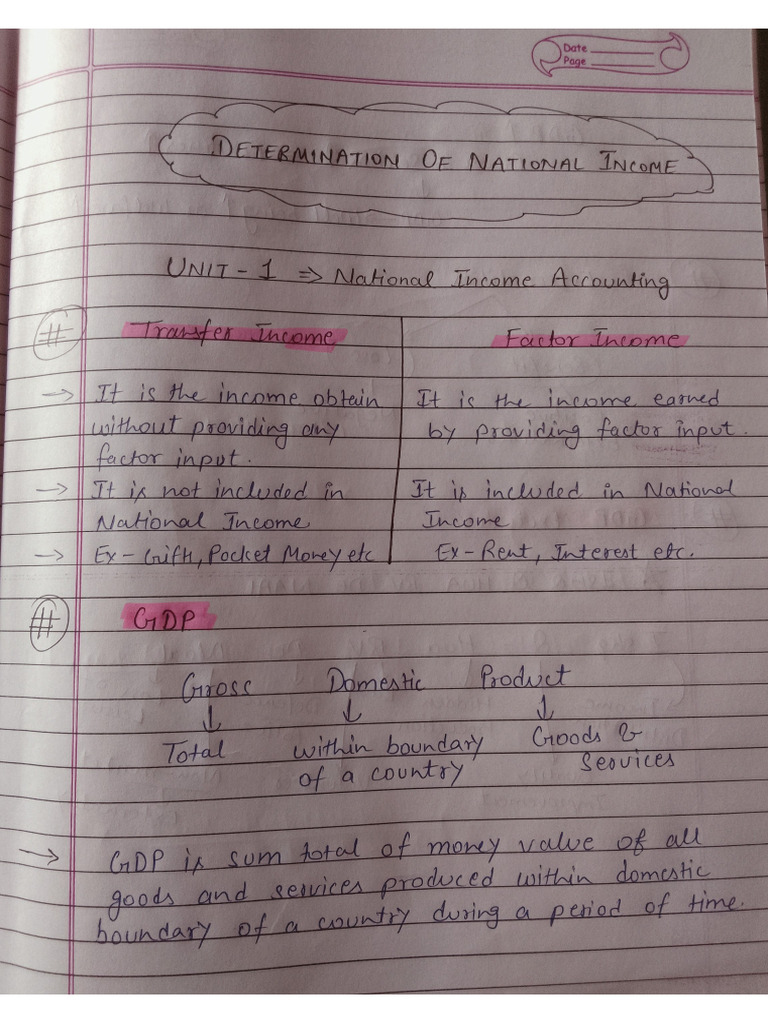 Date
Page
DETERMINATION OF NATIONAL INCOME
UNIT - 1 ⇒ National Income Accounting
# Transfer Income
→ It is the income obtain
without providing any
factor input.
→ It is not included in
National Income
→ Ex - Gifts, Pocket Money etc
Factor Income
It is the income earned
by providing factor input.
It is included in National
Income
Ex - Rent, Interest etc.
# GDP
Gross Domestic Product
↓ ↓ ↓
Total within boundary of a country Goods & Services
→ GDP is sum total of money value of all
goods and services produced within domestic
boundary of a country during a period of time.